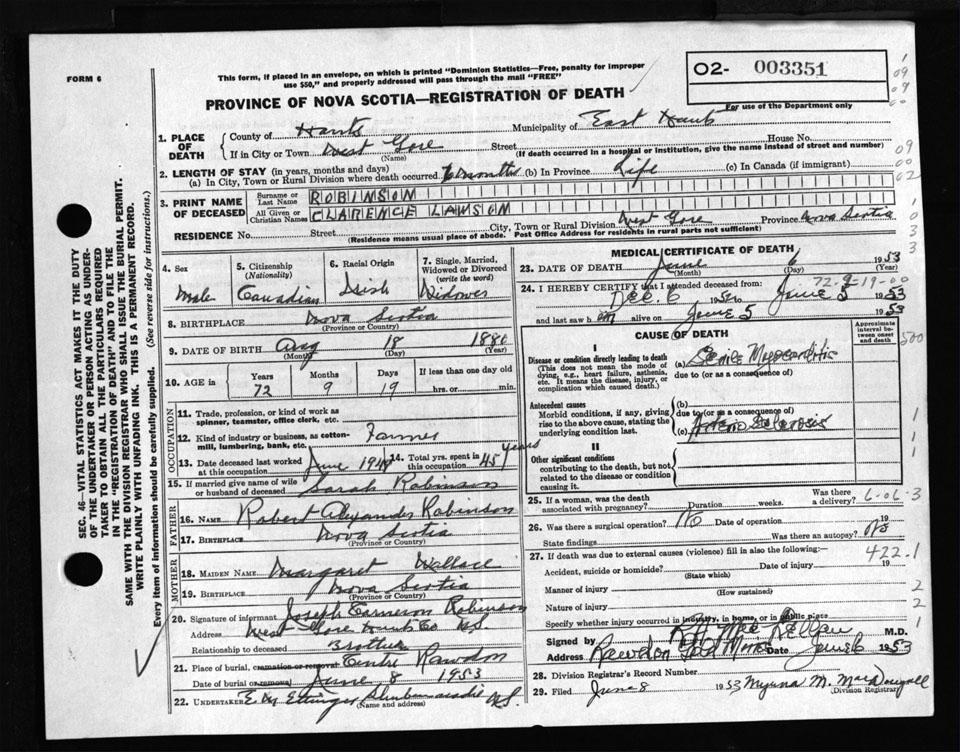 FORM 6
This form, if placed in an envelope, on which is printed "Dominion Statistics—Free, penalty for improper
use $50," and properly addressed will pass through the mail "FREE"
O2- 003351
For use of the Department only
PROVINCE OF NOVA SCOTIA—REGISTRATION OF DEATH
1. PLACE OF DEATH
County of Hants Municipality of East Hants
If in City or Town West Gore Street House No.
(Name) (If death occurred in a hospital or institution, give the name instead of street and number)
2. LENGTH OF STAY (in years, months and days)
(a) In City, Town or Rural Division where death occurred 6 months (b) In Province Life (c) In Canada (if immigrant)
3. PRINT NAME OF DECEASED
Surname or Last Name ROBINSON
All Given or Christian Names CLARENCE LAWSON
RESIDENCE No. Street City, Town or Rural Division West Gore Province Nova Scotia
(Residence means usual place of abode. Post Office Address for residents in rural parts not sufficient)
4. Sex Male
5. Citizenship (Nationality) Canadian
6. Racial Origin Irish
7. Single, Married, Widowed or Divorced (write the word) Widower
8. BIRTHPLACE Nova Scotia
(Province or Country)
9. DATE OF BIRTH Aug 18 1880
(Month) (Day) (Year)
10. AGE in Years 72 Months 9 Days 19 If less than one day old hrs. or min.
OCCUPATION
11. Trade, profession, or kind of work as spinner, teamster, office clerk, etc.
12. Kind of industry or business, as cotton-mill, lumbering, bank, etc. Farmer
13. Date deceased last worked at this occupation June
14. Total yrs. spent in this occupation 45 years
15. If married give name of wife or husband of deceased Sarah Robinson
FATHER
16. NAME Robert Alexander Robinson
17. BIRTHPLACE Nova Scotia
(Province or Country)
MOTHER
18. MAIDEN NAME Margaret Wallace
19. BIRTHPLACE Nova Scotia
(Province or Country)
20. Signature of informant Joseph Cameron Robinson
Address West Gore Hants Co N.S
Relationship to deceased Brother
21. Place of burial, cremation or removal Centre Rawdon
Date of burial or removal June 8 1953
22. UNDERTAKER E M Ettinger Shubenacadie N.S.
(Name and address)
MEDICAL CERTIFICATE OF DEATH
23. DATE OF DEATH June 6 1953
(Month) (Day) (Year)
72-9-19-00
24. I HEREBY CERTIFY that I attended deceased from:
Dec. 6 1952 to June 5 1953
and last saw him alive on June 5 1953
CAUSE OF DEATH
Approximate interval between onset and death
I
Disease or condition directly leading to death
(This does not mean the mode of dying, e.g., heart failure, asthenia, etc. It means the disease, injury, or complication which caused death.)
(a) Senile Myocarditis
due to (or as a consequence of)
Antecedent causes
Morbid conditions, if any, giving rise to the above cause, stating the underlying condition last.
(b)
due to (or as a consequence of)
(c) Arterio Sclerosis
II
Other significant conditions
contributing to the death, but not related to the disease or condition causing it.
25. If a woman, was the death associated with pregnancy? Duration weeks. Was there a delivery?
6-06-3
26. Was there a surgical operation? No Date of operation 19
State findings Was there an autopsy? No
27. If death was due to external causes (violence) fill in also the following:
422.1
Accident, suicide or homicide? Date of injury 19
(State which)
Manner of injury
(How sustained)
Nature of injury
Specify whether injury occurred in industry, in home, or in public place
Signed by M.D.
Address Rawdon Gold Mines Date June 6 1953
28. Division Registrar's Record Number
29. Filed June 8 1953 Myrna M. MacDougall
(Division Registrar)
SEC. 46—VITAL STATISTICS ACT MAKES IT THE DUTY
OF THE UNDERTAKER OR PERSON ACTING AS UNDER-
TAKER TO OBTAIN ALL THE PARTICULARS REQUIRED
IN THE "REGISTRATION OF DEATH" AND TO FILE THE
SAME WITH THE DIVISION REGISTRAR WHO SHALL ISSUE THE BURIAL PERMIT.
WRITE PLAINLY WITH UNFADING INK. THIS IS A PERMANENT RECORD.
Every item of information should be carefully supplied. (See reverse side for instructions.)